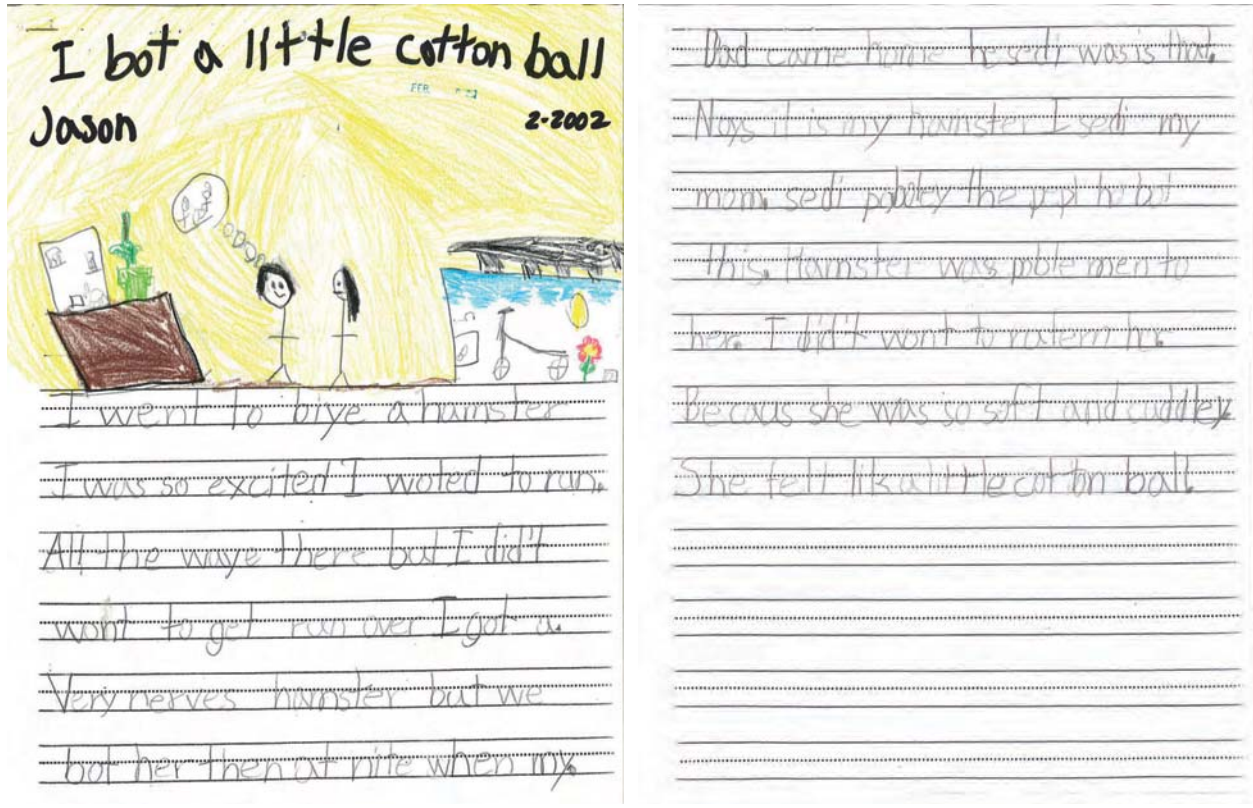 I bot a little cotton ball
Jason
2-2002
FEB
I went to biye a hamster
I was so excited I woted to run.
All the waye there but I did't
wont to get run over I got a.
Very nerves hamster but we
bot her then at nite when my.
Dad came home he sedi was is that.
Nays it is my hamster I sedi my
mom. sedi poboley the pepl ho bot
this. Hamster was poble men to
her. I did't wont to ratern her.
Becaus she was so soft and cuddley
She felt lik a little cotton ball.